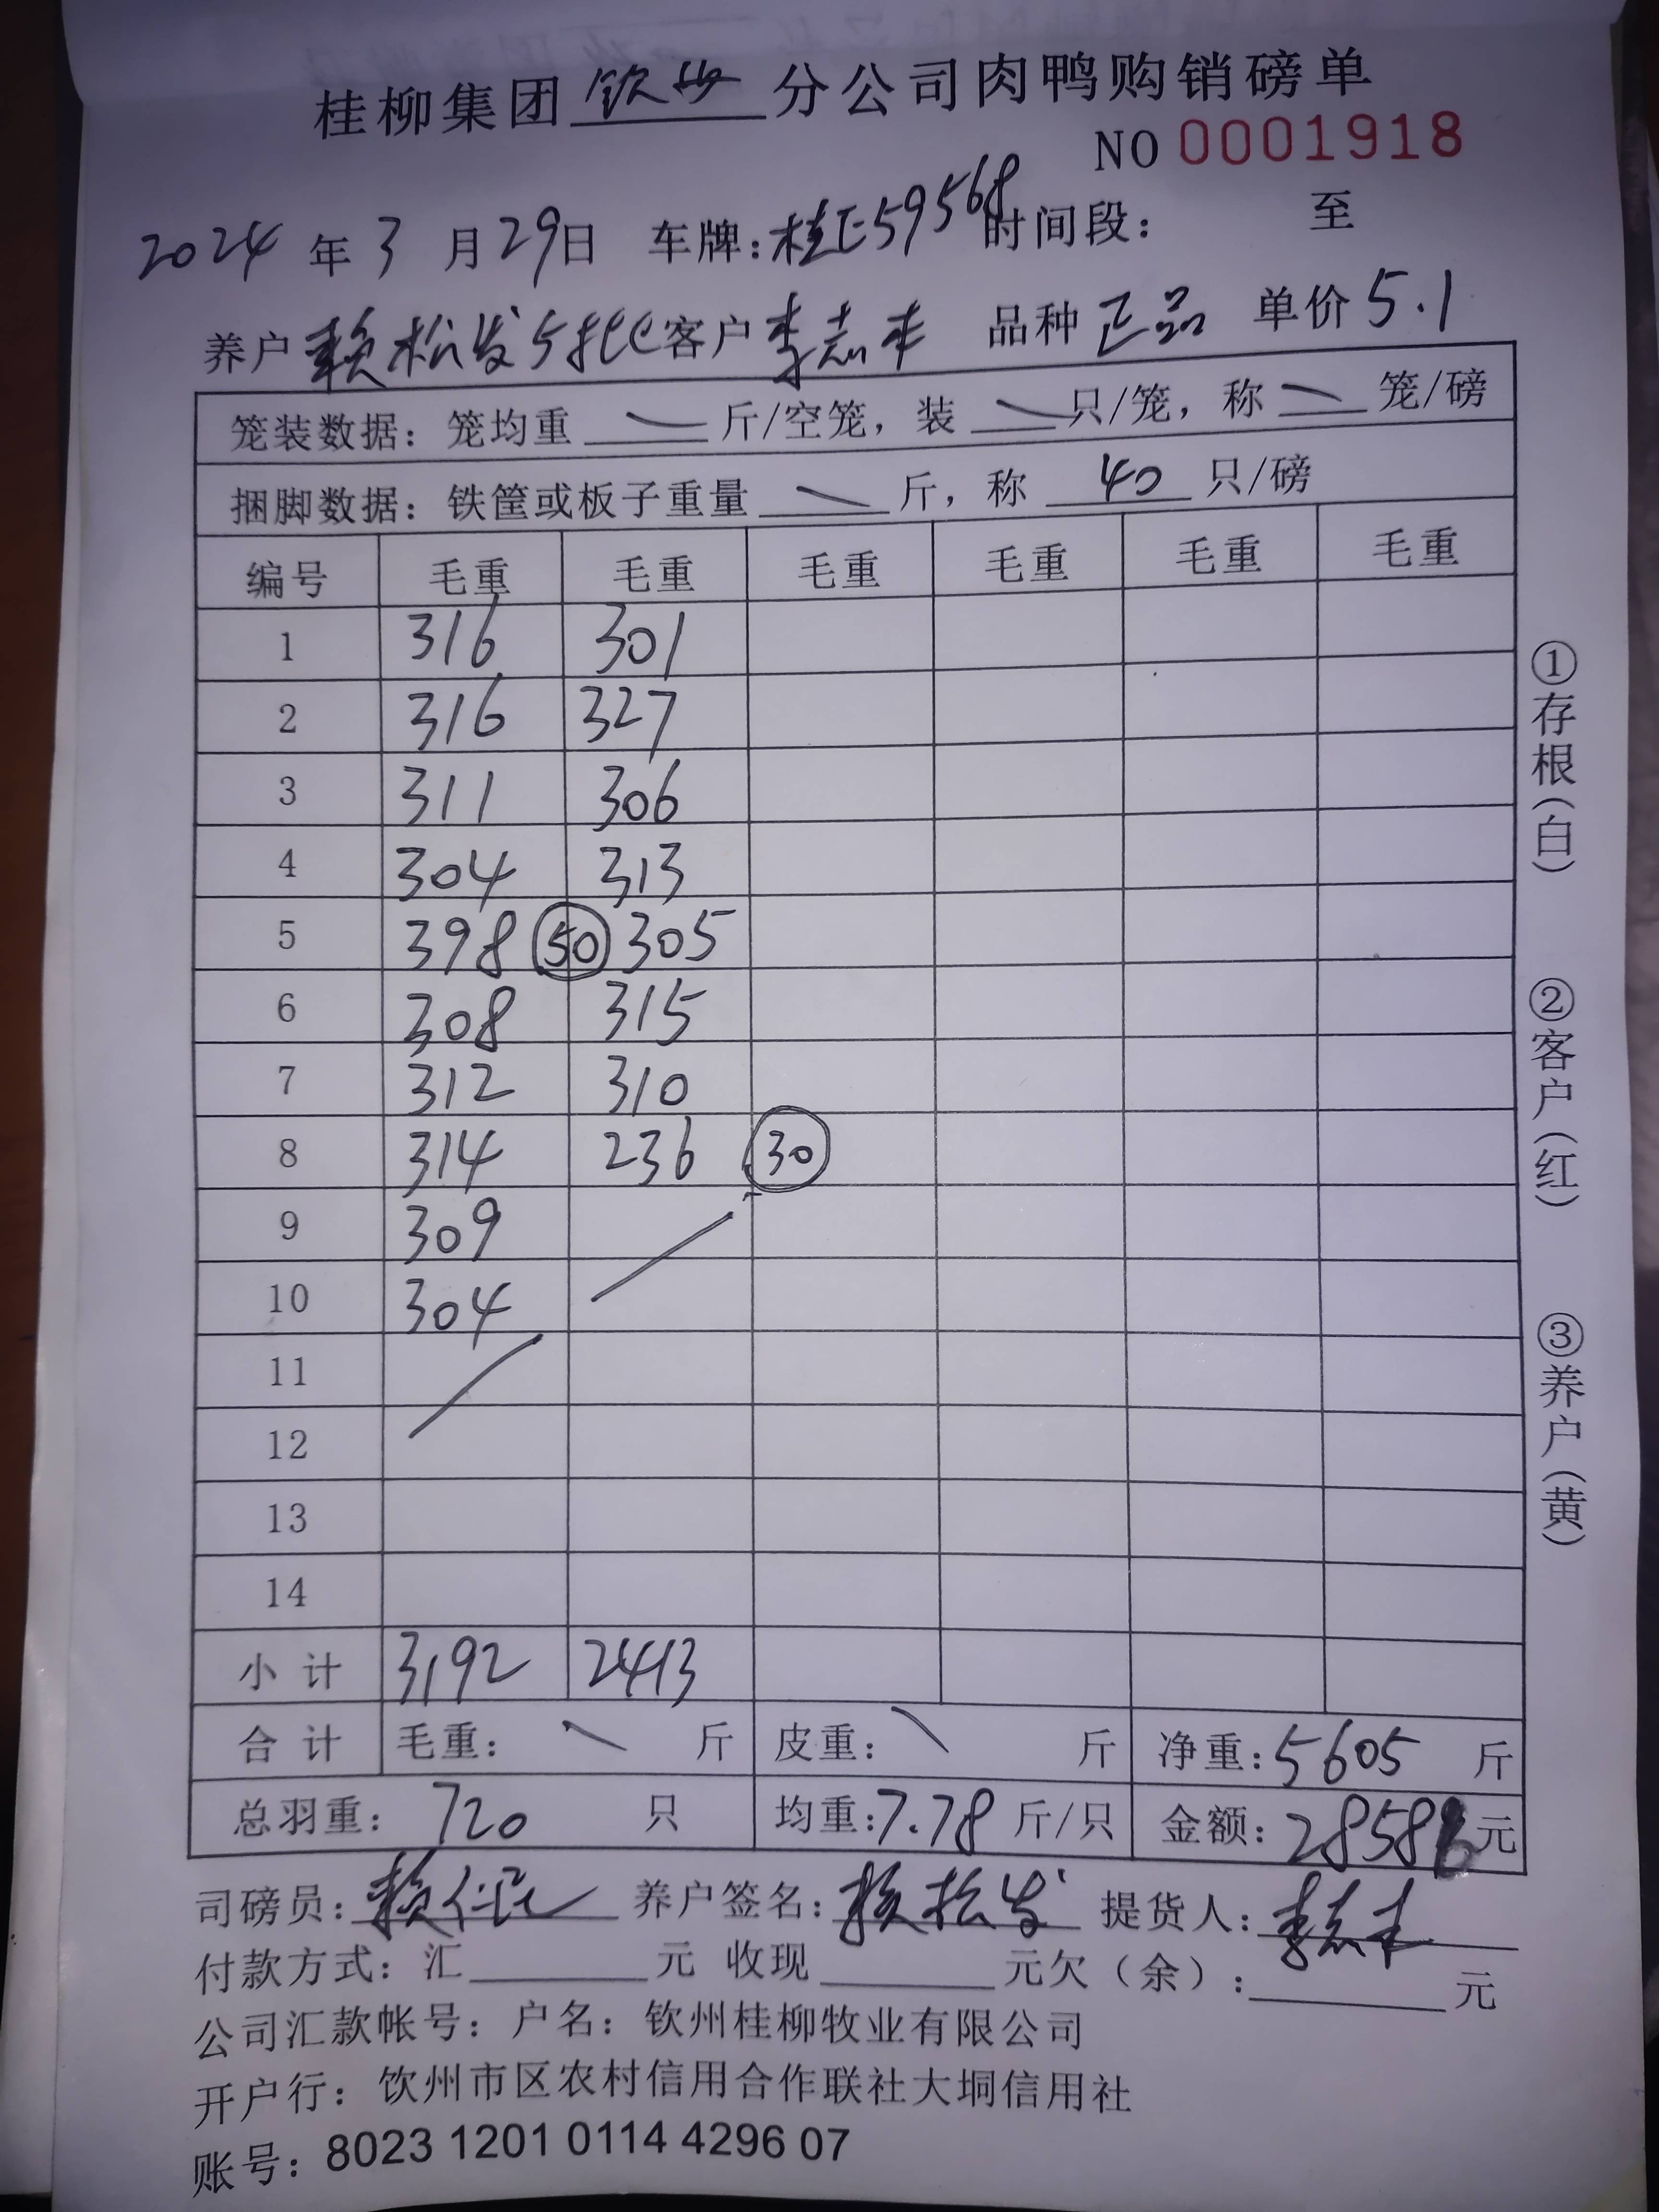 桂柳集团 钦州 分公司肉鸭购销磅单
NO 0001918
2024 年 3 月 29 日 车牌：桂E59568 时间段： 至
养户 赖松发5批 客户 李志丰 品种 正品 单价 5.1
笼装数据：笼均重 \ 斤/空笼，装 \ 只/笼，称 \ 笼/磅
捆脚数据：铁筐或板子重量 \ 斤，称 40 只/磅
编号 毛重 毛重 毛重 毛重 毛重 毛重
1 316 301
2 316 327
3 311 306
4 304 313
5 398 50 305
6 308 315
7 312 310
8 314 236 30
9 309
10 304
11
12
13
14
小计 3192 2413
合计 毛重： \ 斤 皮重： \ 斤 净重：5605 斤
总羽重： 720 只 均重：7.78 斤/只 金额：28586 元
司磅员： 养户签名：赖松发 提货人：李志丰
付款方式：汇 元 收现 元欠（余）： 元
公司汇款帐号：户名：钦州桂柳牧业有限公司
开户行：钦州市区农村信用合作联社大垌信用社
账号：8023 1201 0114 4296 07
①存根（白）
②客户（红）
③养户（黄）